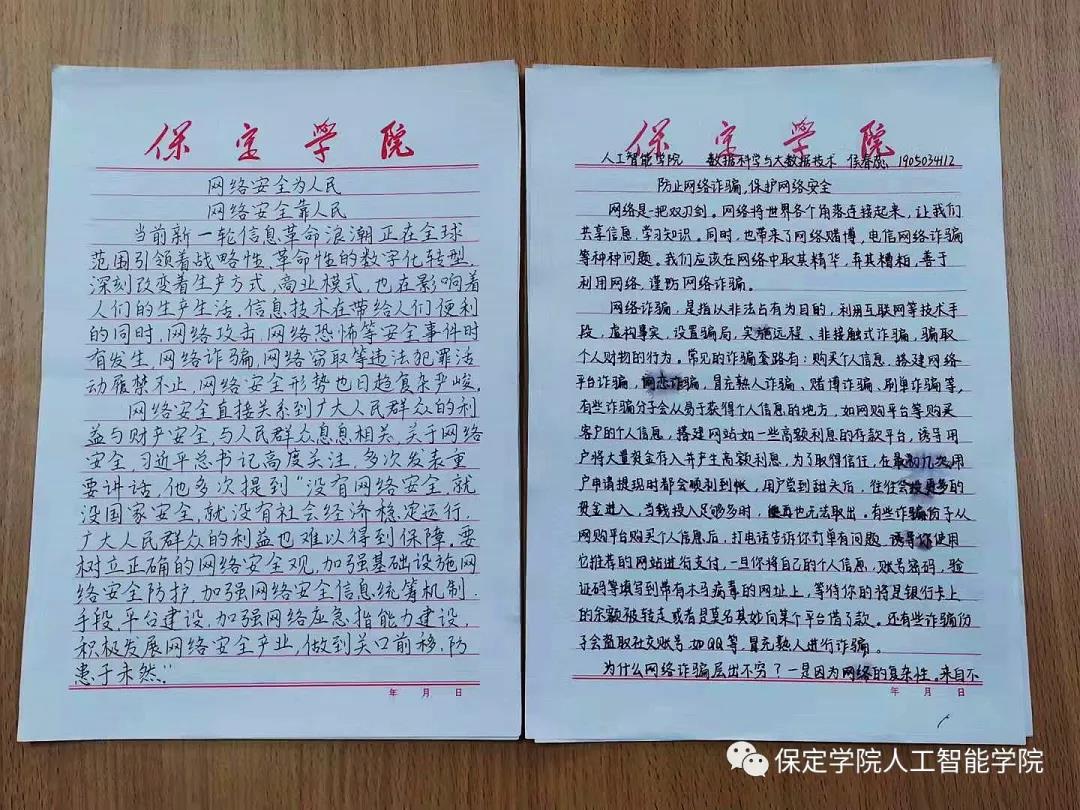 保定学院
网络安全为人民
网络安全靠人民
当前新一轮信息革命浪潮正在全球
范围引领着战略性、革命性的数字化转型,
深刻改变着生产方式、商业模式,也在影响着
人们的生产生活,信息技术在带给人们便利
的同时,网络攻击、网络恐怖等安全事件时
有发生,网络诈骗,网络窃取等违法犯罪活
动履禁不止,网络安全形势也日趋复杂严峻。
网络安全直接关系到广大人民群众的利
益与财产安全,与人民群众息息相关,关于网络
安全,习近平总书记高度关注,多次发表重
要讲话,他多次提到“没有网络安全,就
没国家安全,就没有社会经济稳定运行,
广大人民群众的利益也难以得到保障,要
树立正确的网络安全观,加强基础设施网
络安全防护,加强网络安全信息统筹机制、
手段、平台建设,加强网络应急指能力建设,
积极发展网络安全产业,做到关口前移,防
患于未然.”
年 月 日
保定学院
人工智能学院 数据科学与大数据技术 侯春 1905034112
防止网络诈骗,保护网络安全
网络是一把双刃剑。网络将世界各个角落连接起来,让我们
共享信息,学习知识。同时,也带来了网络赌博,电信网络诈骗
等种种问题。我们应该在网络中取其精华,弃其槽粕,善于
利用网络,谨防网络诈骗。
网络诈骗,是指以非法占有为目的,利用互联网等技术手
段,虚构事实,设置骗局,实施远程、非接触式诈骗,骗取
个人财物的行为。常见的诈骗套路有:购买个人信息,搭建网络
平台诈骗,网恋诈骗,冒充熟人诈骗、赌博诈骗、刷单诈骗等。
有些诈骗分子会从易于获得个人信息的地方,如网购平台等购买
客户的个人信息,搭建网站如一些高额利息的存款平台,诱导用
户将大量资金存入并产生高额利息,为了取得信任,在最初几次用
户申请提现时都会顺利到帐,用户尝到甜头后,往往会投更多的
资金进入,当钱投入足够多时,便再也无法取出。有些诈骗份子从
网购平台购买个人信息后,打电话告诉你订单有问题,诱导你使用
它推荐的网站进行支付,一旦你将自己的个人信息,账号密码,验
证码等填写到带有木马病毒的网址上,等待你的将是银行卡上
的余额被转走或者是莫名其妙向某个平台借了款。还有些诈骗份
子会盗取社交账号,如QQ等,冒充熟人进行诈骗。
为什么网络诈骗层出不穷?一是因为网络的复杂性。来自不
年 月 日
保定学院人工智能学院